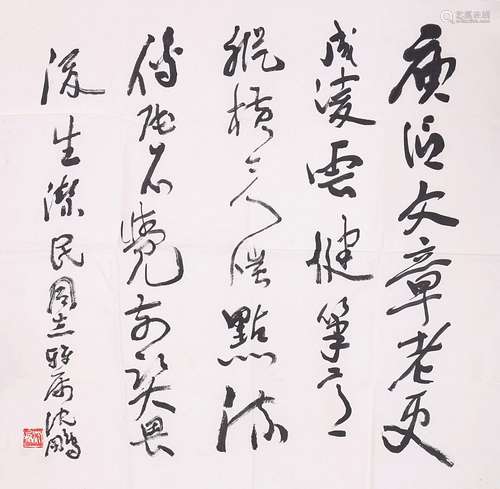 庾信文章老更
成凌雲健筆意
縱橫今人嗤點流
傳賦不覺前賢畏
後生潔民同志雅屬沈鵬